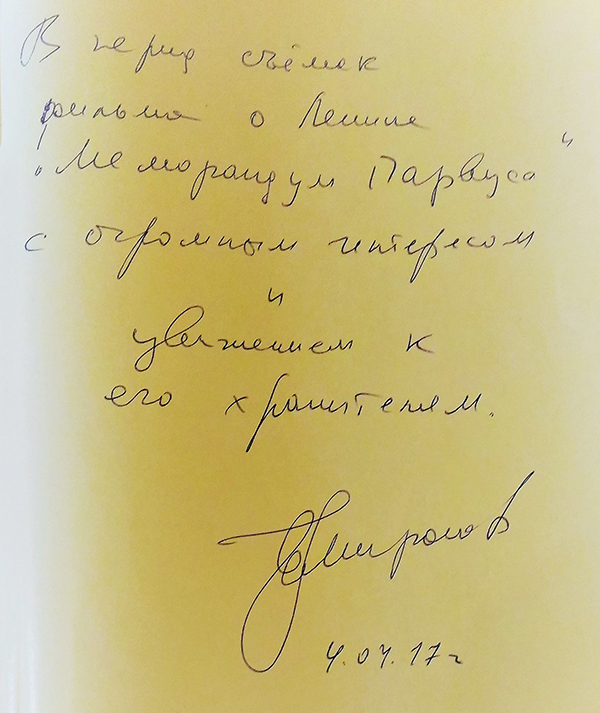 В перид съёмок
фильма о Ленине
"Меморандум Парвуса"
с огромным интересом
и
уважением к
его хранителям.
Миронов
4.04.17 г